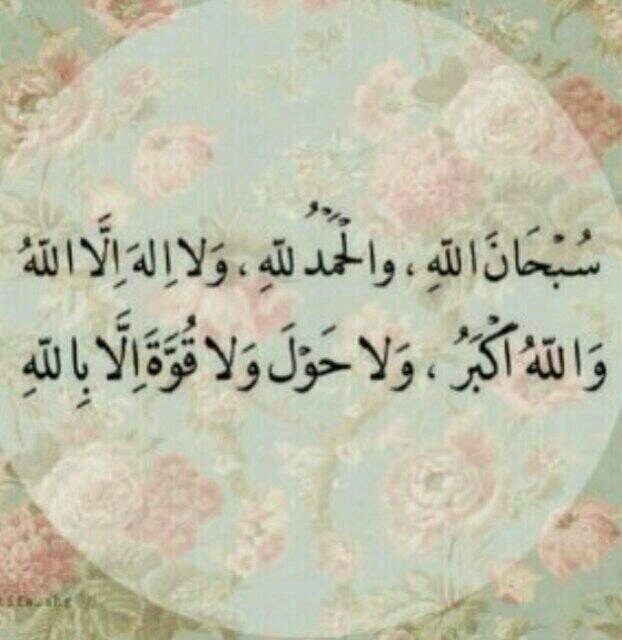 سُبْحَانَ اللّٰهِ ، والْحَمْدُ للّٰهِ ، وَلا اِلهَ اِلَّا اللّٰهُ
وَاللّٰهُ اَكْبَرُ ، وَلا حَوْلَ وَلا قُوَّةَ اِلَّا بِاللّٰهِ